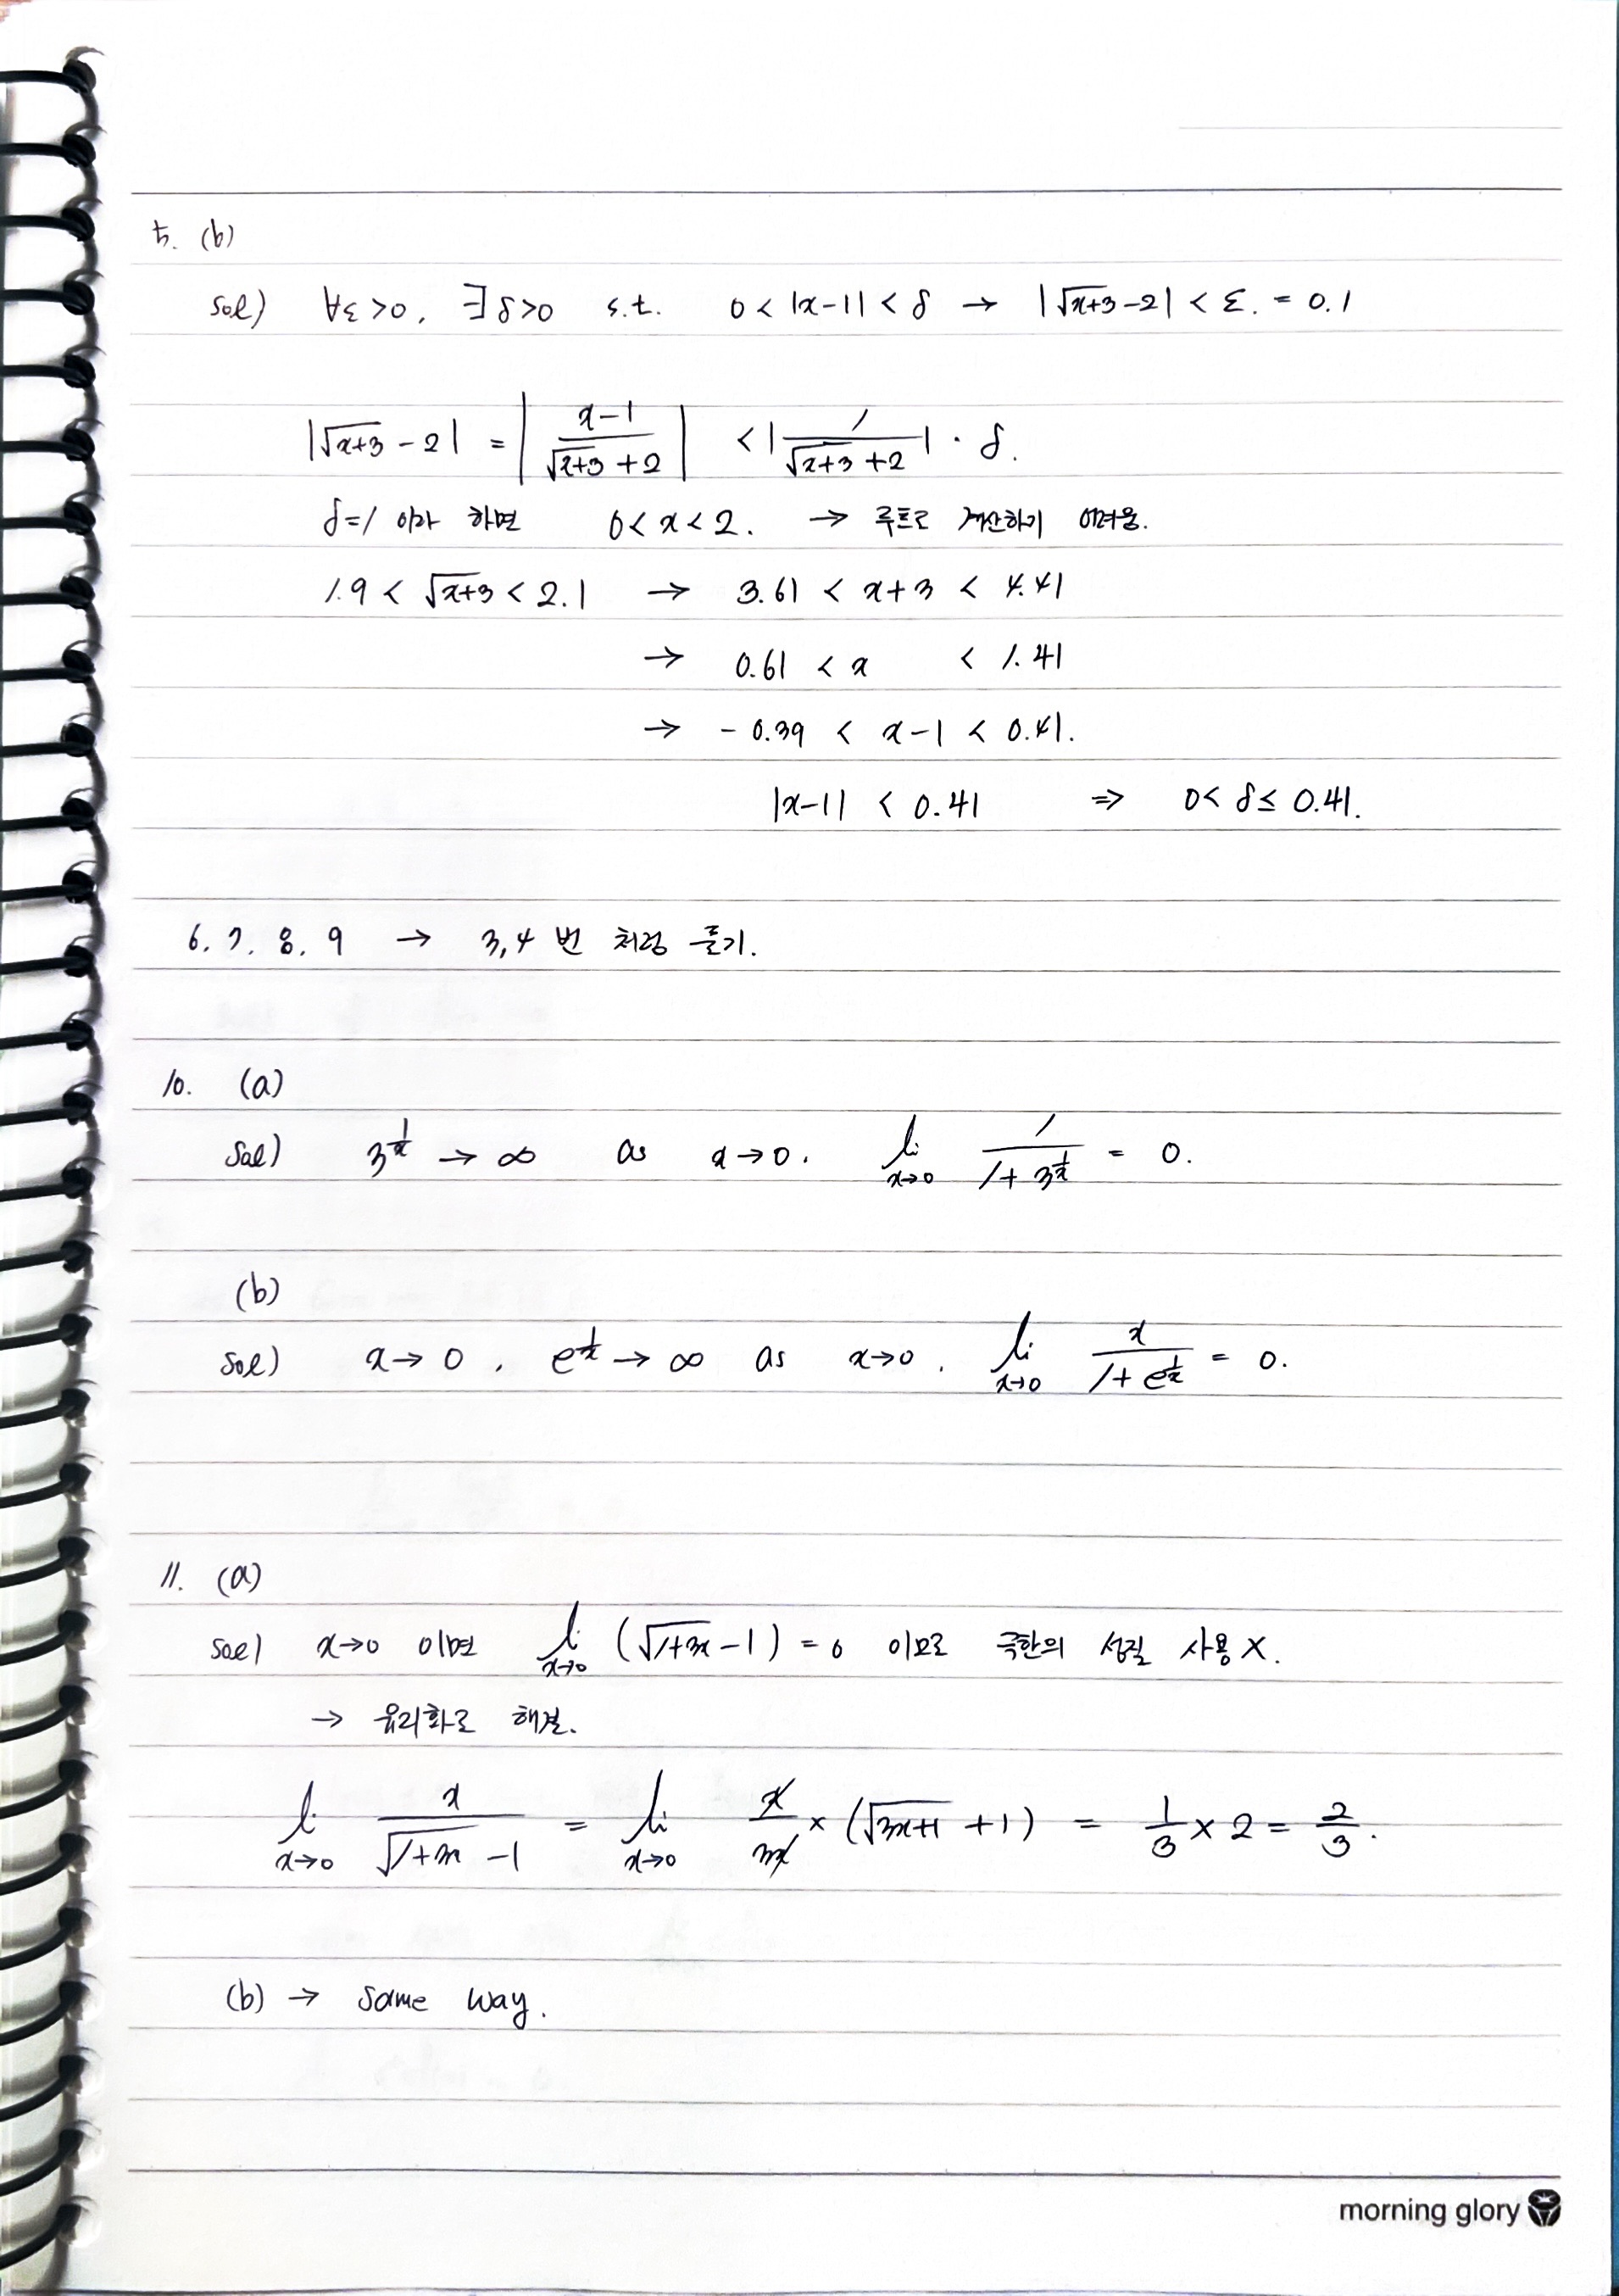 5. (b)
sol) ∀ε>0, ∃δ>0 s.t. 0<|x-1|<δ → |√(x+3)-2|<ε. = 0.1
|√(x+3) - 2| = |(x-1)/(√(x+3)+2)| < |1/(√(x+3)+2)| · δ.
δ=1 이라 하면 0<x<2. → 루트로 계산하기 어려움.
1.9 < √(x+3) < 2.1 → 3.61 < x+3 < 4.41
→ 0.61 < x < 1.41
→ -0.39 < x-1 < 0.41.
|x-1| < 0.41 ⇒ 0< δ ≤ 0.41.
6. 7. 8. 9 → 3,4 번 처럼 풀기.
10. (a)
sol) 3^(1/x) → ∞ as x→0. li x→0 1/(1+3^(1/x)) = 0.
(b)
sol) x→0, e^(1/x) → ∞ as x→0. li x→0 x/(1+e^(1/x)) = 0.
11. (a)
sol) x→0 이면 li x→0 (√(1+3x)-1) = 0 이므로 극한의 성질 사용 X.
→ 유리화로 해결.
li x→0 x/(√(1+3x)-1) = li x→0 x/3x × (√(3x+1)+1) = 1/3 × 2 = 2/3.
(b) → same way.
morning glory